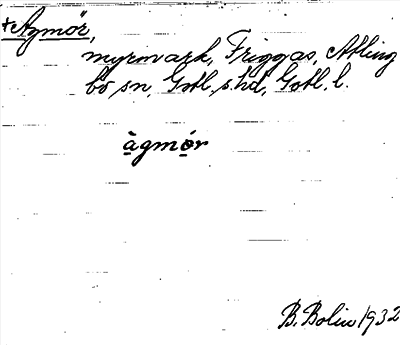 +Agmör,
myrmark, Friggas, Atling
bo sn, Gotl. s. hd, Gotl. l.
àgmór
B. Bolin 1932